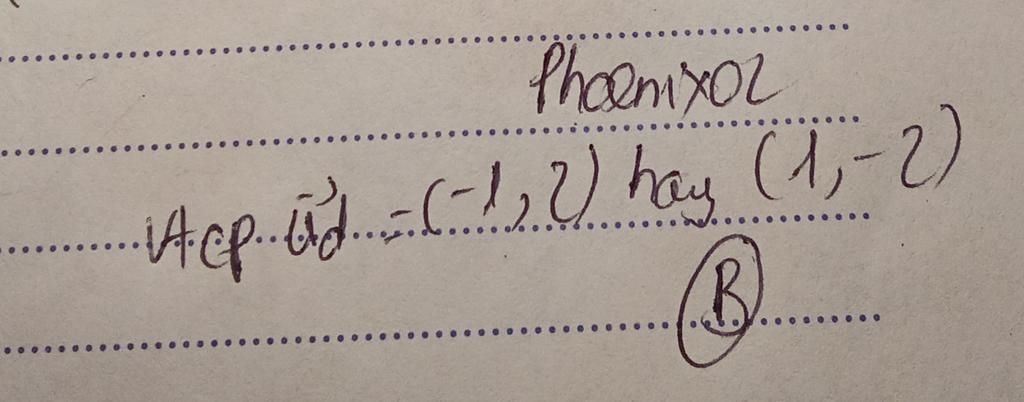 Phoenixol
Vtcp u⃗d = (-1, 2) hay (1, -2)
B